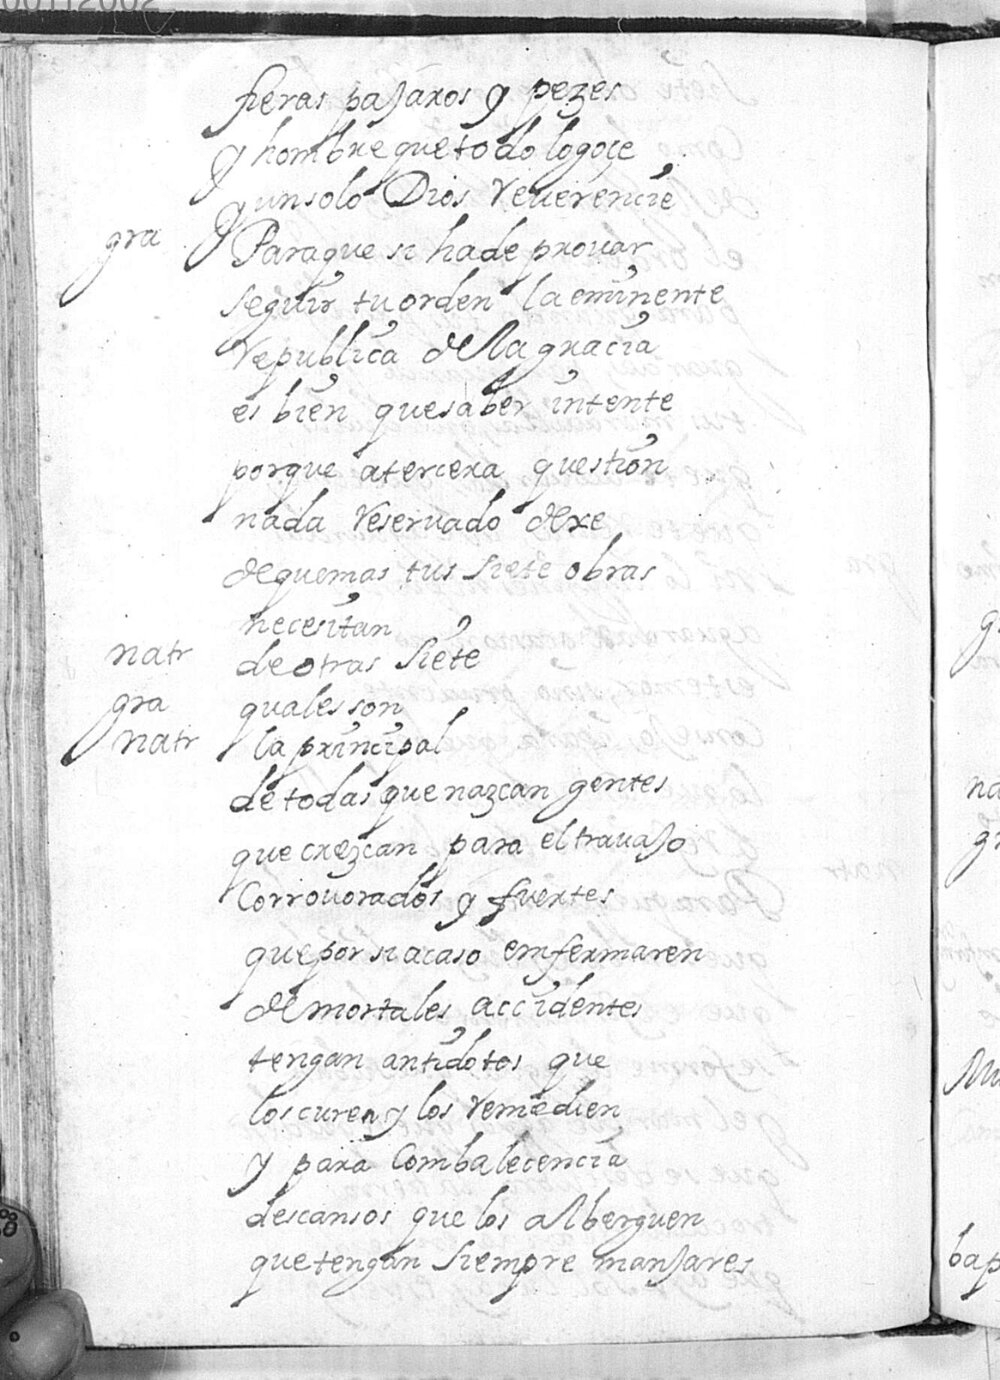 00112002
fieras paJaros y pezes
y hombre que todo lo goçe
y un solo Dios reuerencie
gra Para que si ha de prouar
seguir tu orden la eminente
republica de la gracia
es bien que saber intente
porque a tercera question
nada reseruado dexe
de que mas tus siete obras
necesitan
natr de otras siete
gra quales son
natr la principal
de todas que nazcan gentes
que crezcan para el trauaJo
Corrouorados y fuertes
que por si acaso enfermaren
de mortales accidentes
tengan antidotos que
los curen y los remedien
y para Combalecencia
descansos que los alberguen
que tengan siempre manJares